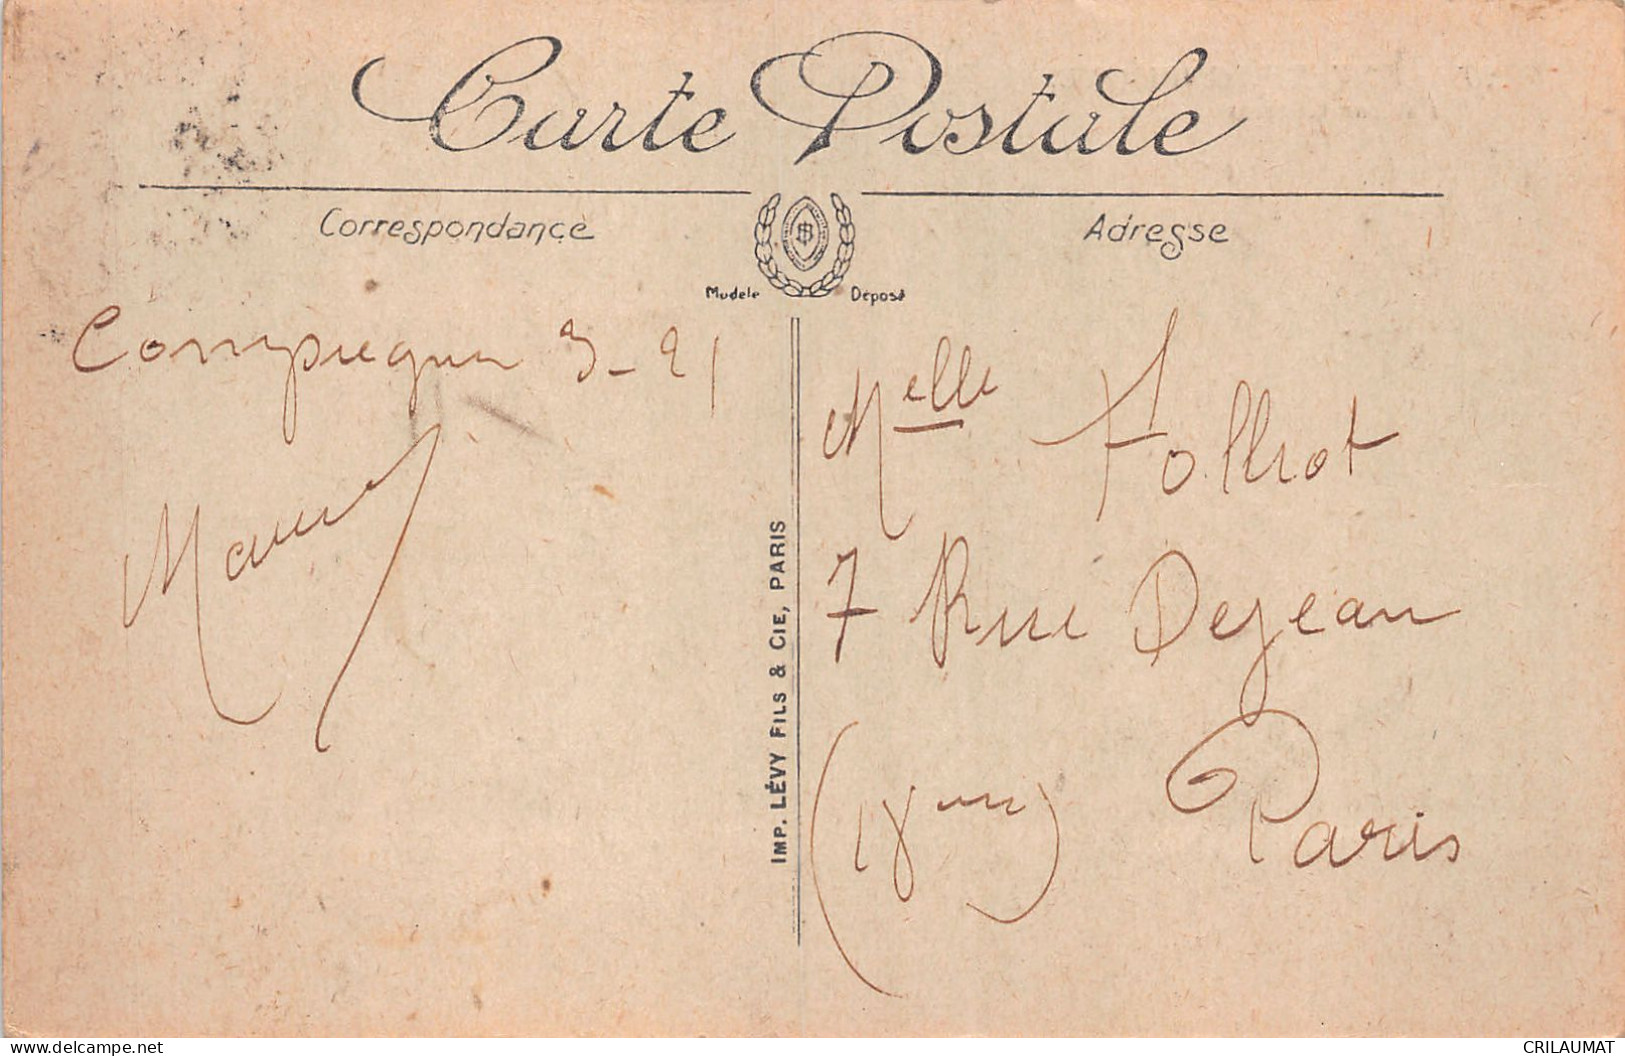 Carte Postale
Correspondance
Adresse
Modèle Déposé
Compiegne 3-21
IMP. LÉVY FILS & CIE, PARIS
Melle
7 Rue Dejean
(18eme) Paris
delcampe.net
CRILAUMAT